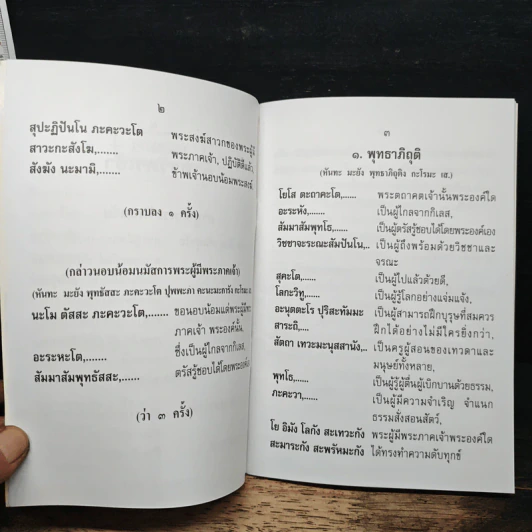 ๒
สุปะฏิปันโน ภะคะวะโต พระสงฆ์สาวกของพระผู้มี
สาวะกะสังโฆ,....... พระภาคเจ้า, ปฏิบัติดีแล้ว,
สังฆัง นะมามิ,....... ข้าพเจ้านอบน้อมพระสงฆ์.
(กราบลง ๑ ครั้ง)
(กล่าวนอบน้อมนมัสการพระผู้มีพระภาคเจ้า)
(หันทะ มะยัง พุทธัสสะ ภะคะวะโต ปุพพะภา คะนะมะการัง กะโรมะ
นะโม ตัสสะ ภะคะวะโต,....... ขอนอบน้อมแด่พระผู้มีพระ
ภาคเจ้า พระองค์นั้น,
อะระหะโต,....... ซึ่งเป็นผู้ไกลจากกิเลส,
สัมมาสัมพุทธัสสะ,...... ตรัสรู้ชอบได้โดยพระองค์
(ว่า ๓ ครั้ง)
๓
๑. พุทธาภิถุติ
(หันทะ มะยัง พุทธาภิถุติง กะโรมะ เส.)
โยโส ตะถาคะโต,...... พระตถาคตเจ้านั้นพระองค์ใด
อะระหัง,....... เป็นผู้ไกลจากกิเลส,
สัมมาสัมพุทโธ,...... เป็นผู้ตรัสรู้ชอบได้โดยพระองค์เอง
วิชชาจะระณะสัมปันโน,.. เป็นผู้ถึงพร้อมด้วยวิชชาและ
จรณะ
สุคะโต,...... เป็นผู้ไปแล้วด้วยดี,
โลกะวิทู,....... เป็นผู้รู้โลกอย่างแจ่มแจ้ง,
อะนุตตะโร ปุริสะทัมมะ เป็นผู้สามารถฝึกบุรุษที่สมควร
สาระถิ,...... ฝึกได้อย่างไม่มีใครยิ่งกว่า,
สัตถา เทวะมะนุสสานัง,... เป็นครูผู้สอนของเทวดาและ
มนุษย์ทั้งหลาย,
พุทโธ,...... เป็นผู้รู้ผู้ตื่นผู้เบิกบานด้วยธรรม,
ภะคะวา,...... เป็นผู้มีความจำเริญ จำแนก
ธรรมสั่งสอนสัตว์,
โย อิมัง โลกัง สะเทวะกัง พระผู้มีพระภาคเจ้าพระองค์ใด
สะมาระกัง สะพรัหมะกัง ได้ทรงทำความดับทุกข์